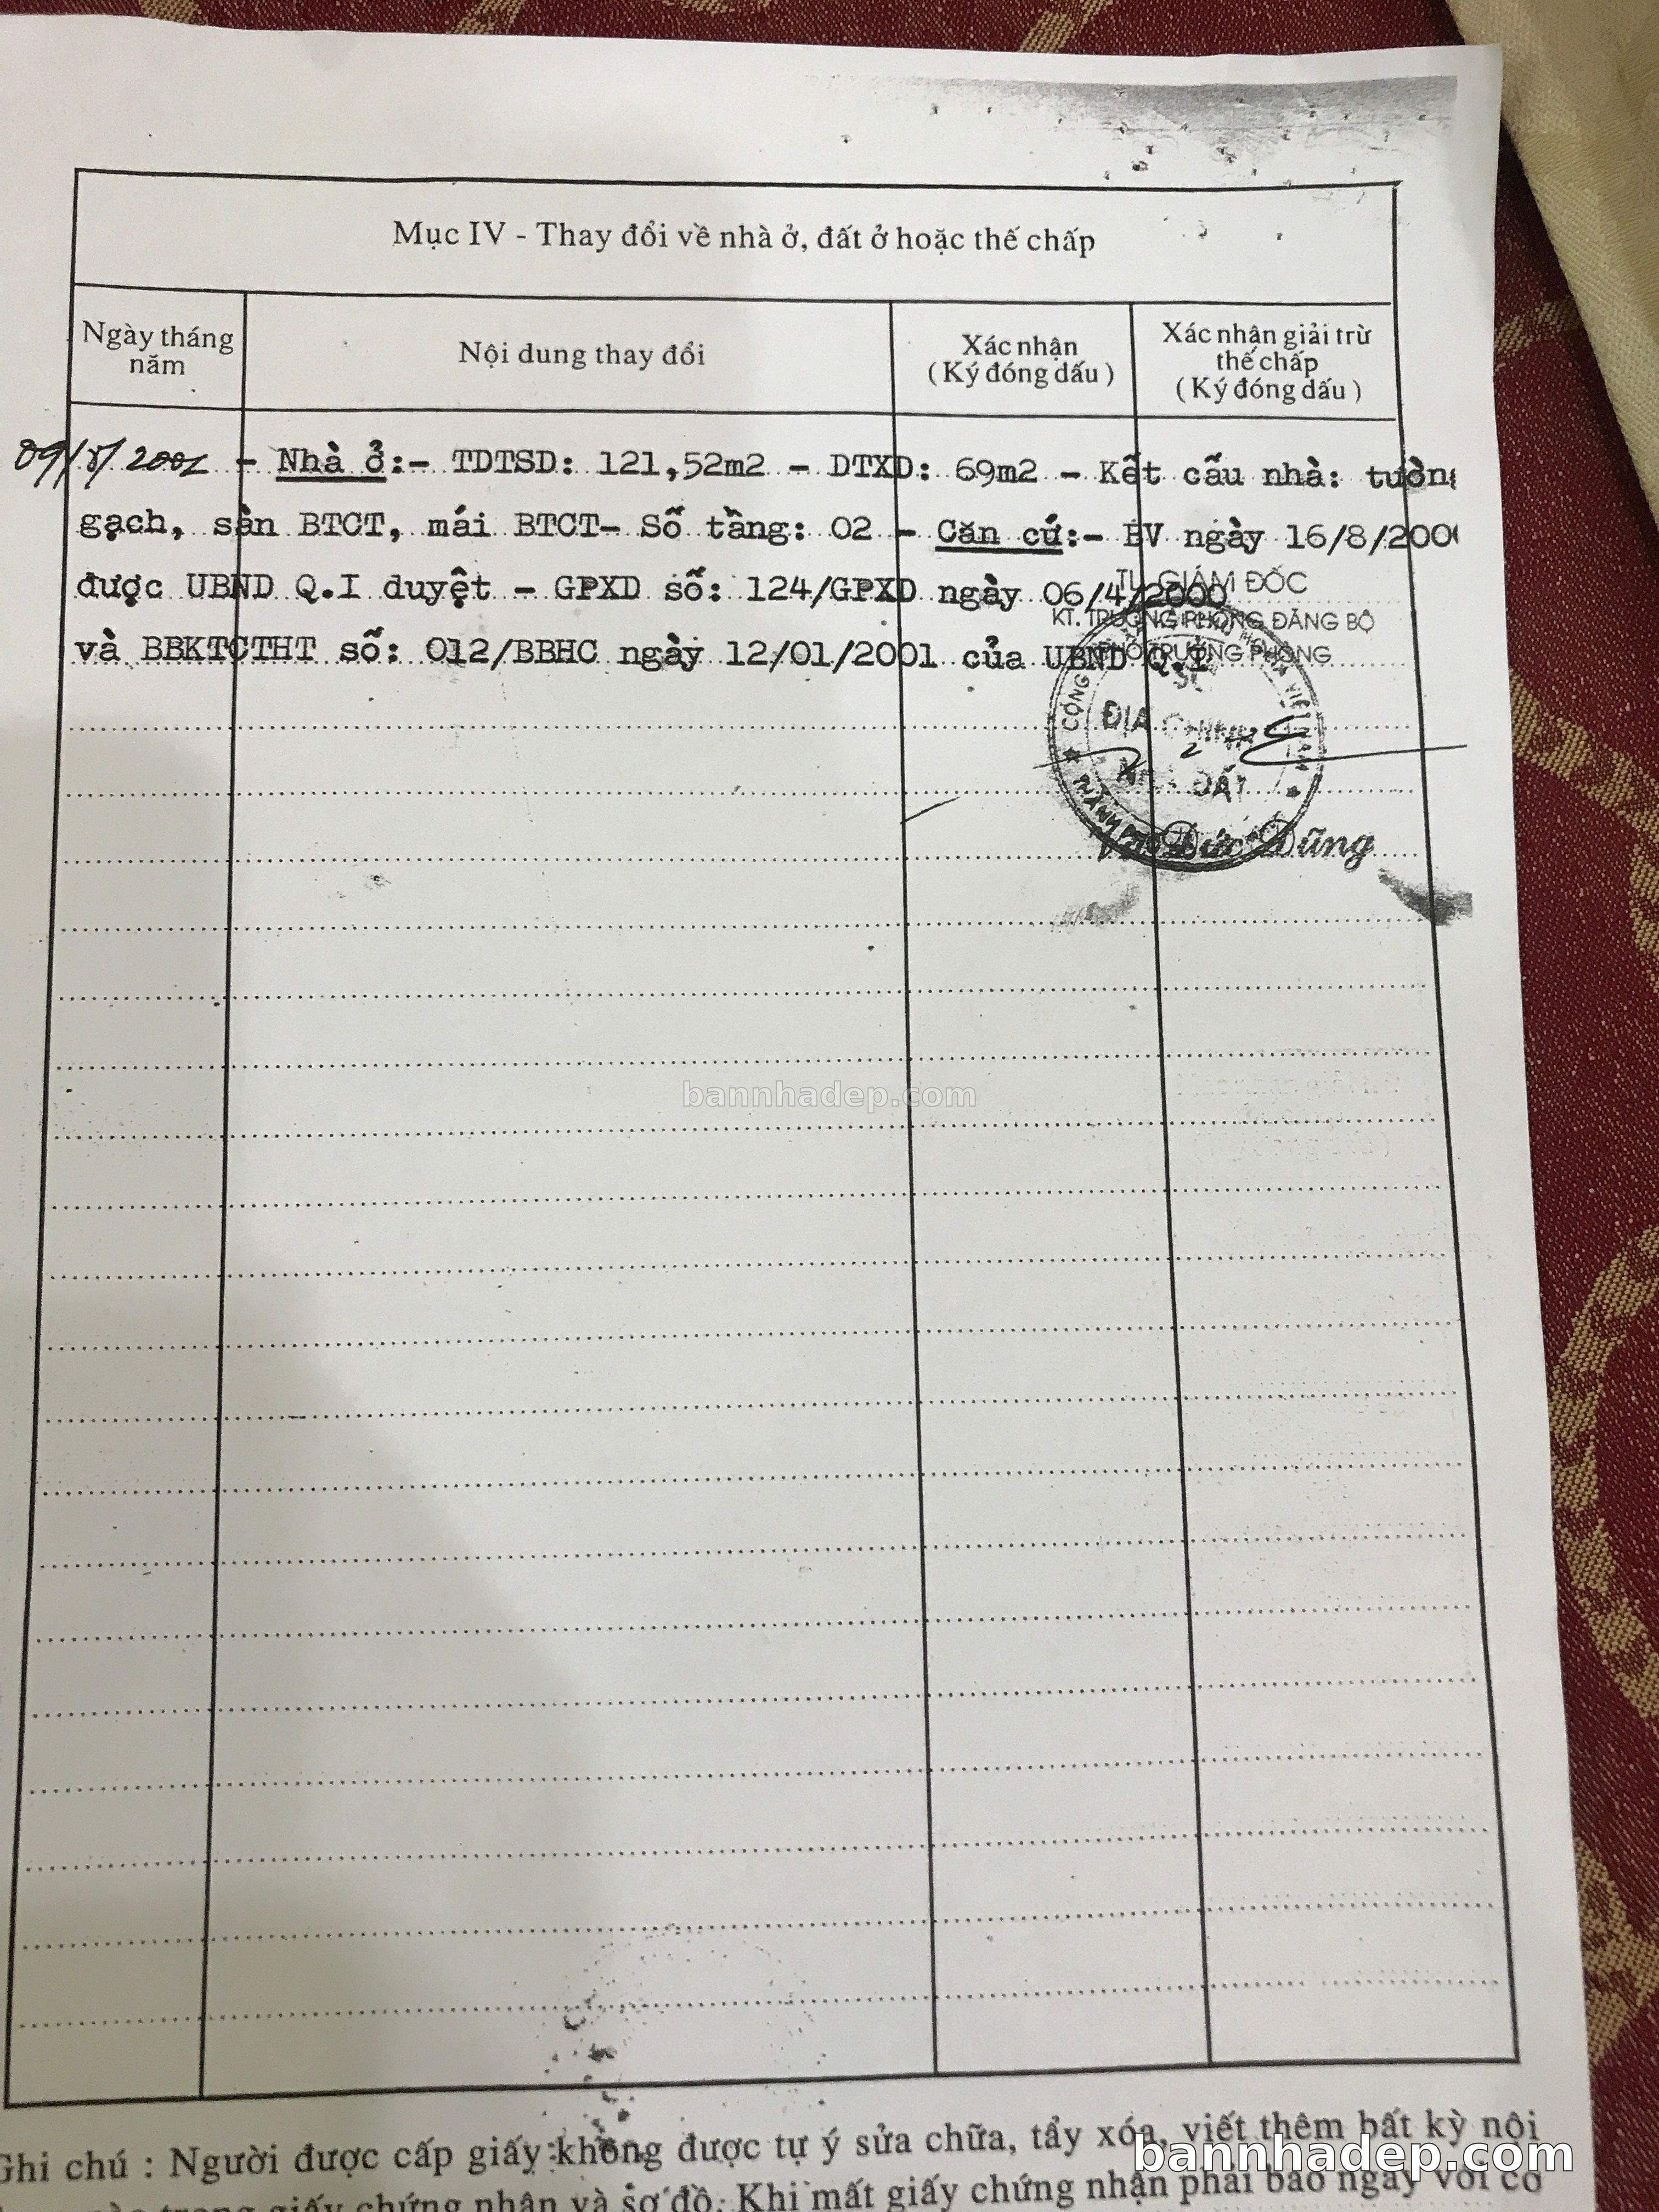 Mục IV - Thay đổi về nhà ở, đất ở hoặc thế chấp
Ngày tháng năm
Nội dung thay đổi
Xác nhận
( Ký đóng dấu )
Xác nhận giải trừ
thế chấp
( Ký đóng dấu )
- Nhà ở:- TDTSD: 121,52m2 - DTXD: 69m2 - Kết cấu nhà: tường
gạch, sàn BTCT, mái BTCT- Số tầng: 02 - Căn cứ:- BV ngày 16/8/2000
được UBND Q.I duyệt - GPXD số: 124/GPXD ngày 06/4/2000
và BBKTCTHT số: 012/BBHC ngày 12/01/2001 của UBND Q.I
TL. GIÁM ĐỐC
KT. TRƯỞNG PHÒNG ĐĂNG BỘ
PHÓ TRƯỞNG PHÒNG
ĐỊA CHÍNH
NHÀ ĐẤT
Đức Dũng
bannhadep.com
Ghi chú : Người được cấp giấy không được tự ý sửa chữa, tẩy xóa, viết thêm bất kỳ nội
trong giấy chứng nhận và sơ đồ. Khi mất giấy chứng nhận phải báo ngay với cơ
bannhadep.com